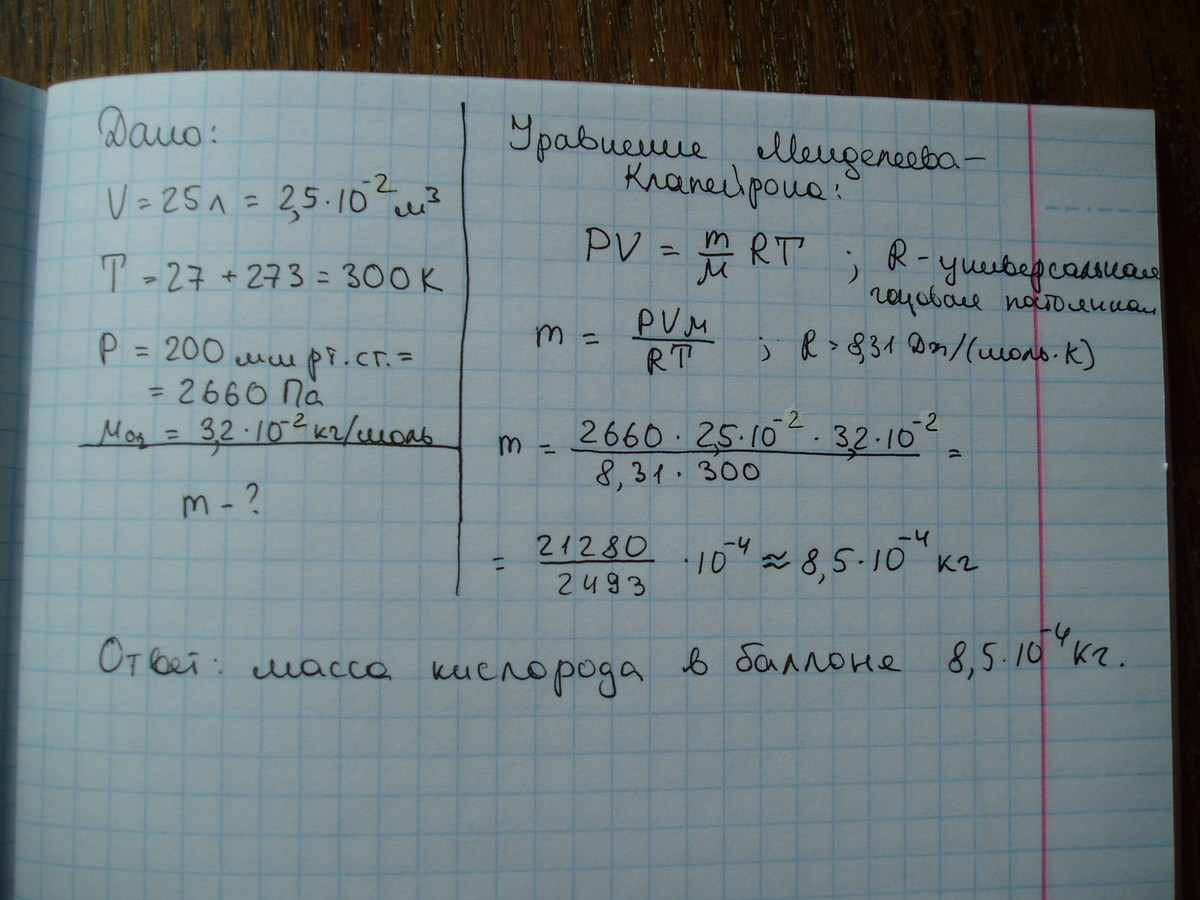 Дано:
V = 25 л = 2,5·10⁻² м³
T = 27 + 273 = 300 К
P = 200 мм рт. ст. =
= 2660 Па
μO₂ = 3,2·10⁻² кг/моль
m - ?
Уравнение Менделеева–
Клапейрона:
PV = m/μ RT ; R - универсальная
газовая постоянная
m = PVμ/RT ; R = 8,31 Дж/(моль·К)
m = 2660 · 2,5·10⁻² · 3,2·10⁻² / 8,31 · 300 =
= 21280/2493 ·10⁻⁴ ≈ 8,5·10⁻⁴ кг
Ответ: масса кислорода в баллоне 8,5·10⁻⁴ кг.